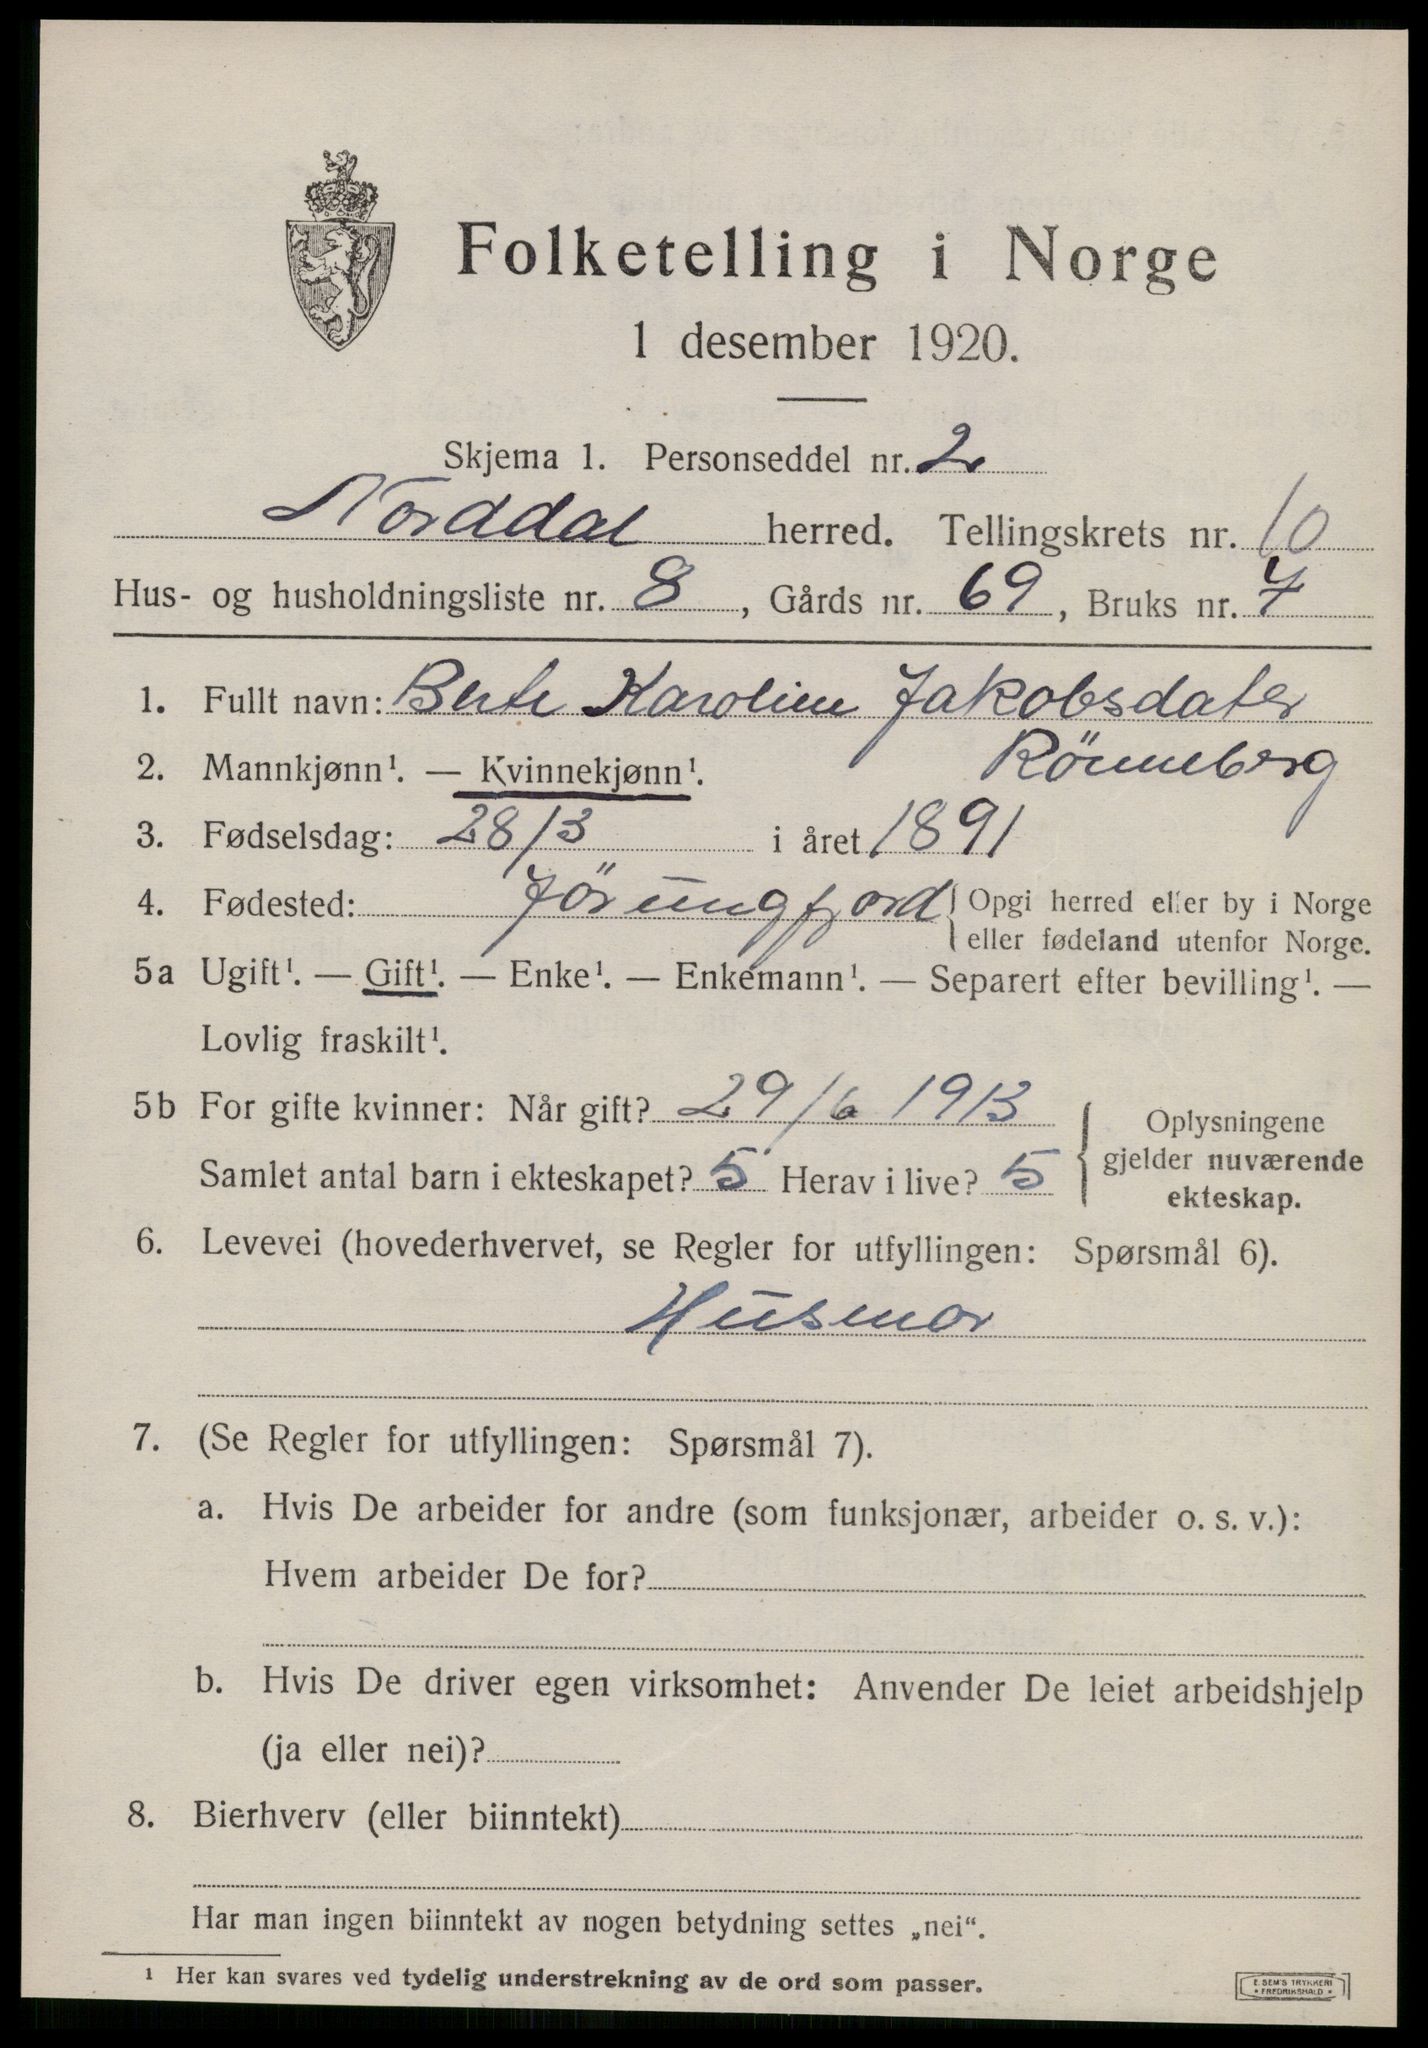 Folketelling i Norge
1 desember 1920.
Skjema 1. Personseddel nr. 2
Norddal herred. Tellingskrets nr. 10
Hus- og husholdningsliste nr. 8, Gårds nr. 69, Bruks nr. 7
1. Fullt navn: Berte Karoline Jakobsdater
Rönneberg
2. Mannkjønn¹. — Kvinnekjønn¹.
3. Fødselsdag: 28/3 i året 1891
4. Fødested: Jörungfjord { Opgi herred eller by i Norge
eller fødeland utenfor Norge.
5a Ugift¹. — Gift¹. — Enke¹. — Enkemann¹. — Separert efter bevilling¹. —
Lovlig fraskilt¹.
5b For gifte kvinner: Når gift? 29/6 1913
Samlet antal barn i ekteskapet? 5 Herav i live? 5
{ Oplysningene
gjelder nuværende
ekteskap.
6. Levevei (hovederhvervet, se Regler for utfyllingen: Spørsmål 6).
Husmor
7. (Se Regler for utfyllingen: Spørsmål 7).
a. Hvis De arbeider for andre (som funksjonær, arbeider o. s. v.):
Hvem arbeider De for?
b. Hvis De driver egen virksomhet: Anvender De leiet arbeidshjelp
(ja eller nei)?
8. Bierhverv (eller biinntekt)
Har man ingen biinntekt av nogen betydning settes „nei“.
¹ Her kan svares ved tydelig understrekning av de ord som passer.
E. SEM'S TRYKKERI
* FREDRIKSHALD *